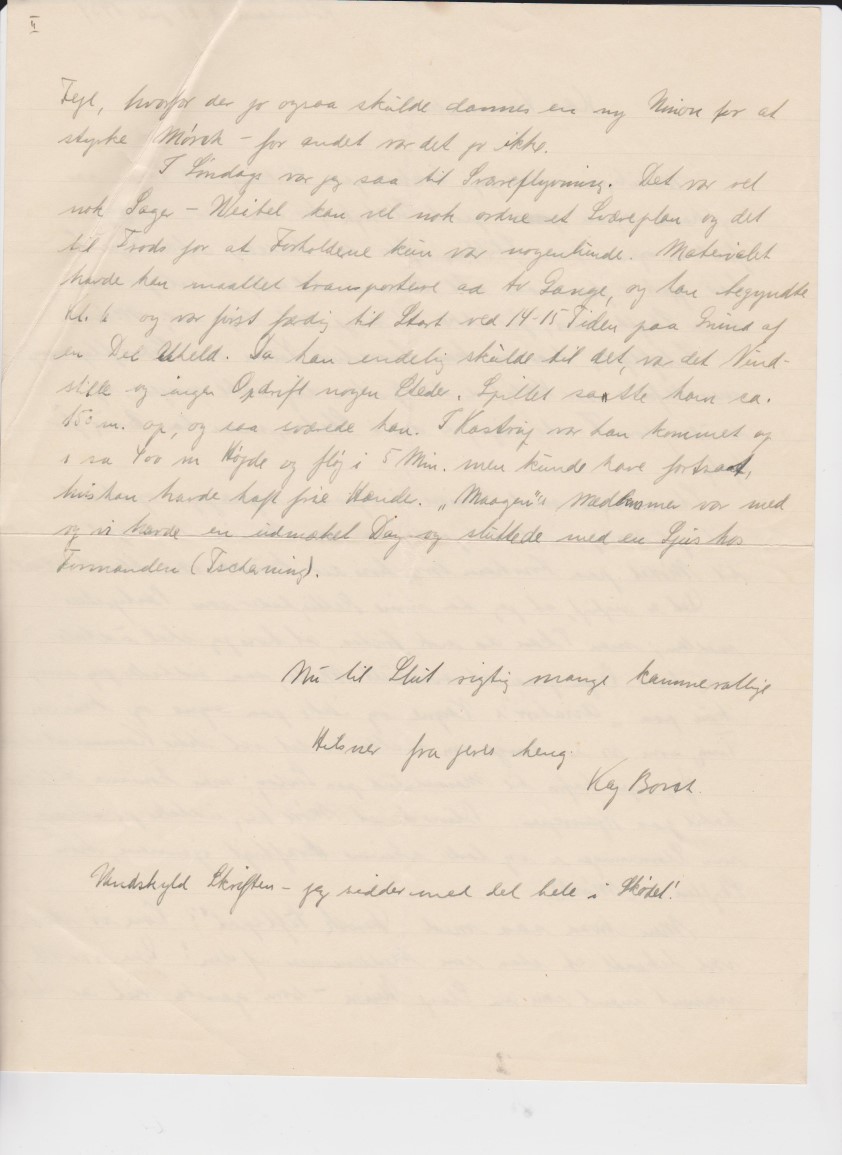 II
Fejl, hvorfor der jo ogsaa skulde dannes en ny Union for at
styrke Mørch – for andet var det jo ikke.
I Søndags var jeg saa til Svæveflyvning. Det var vel
nok Sager – Weibel kan vel nok ordne et Svæveplan og det
til Trods for at Forholdene kun var nogenlunde. Materialet
havde han maattet transportere ad to Gange, og han begyndte
Kl. 6 og var først færdig til Start ved 14-15 Tiden paa Grund af
en Del Uheld. Da han endelig skulde til det, var det Vind-
stille og ingen Opdrift nogen Steder. Spillet satte ham ca.
150 m. op, og saa svævede han. I Kastrup var han kommet op
i ca 400 m Højde og fløj i 5 Min. men kunde have fortsat,
hvis han havde haft frie Hænder. „Maagen"s Medlemmer var med
og vi havde en udmærket Dag og sluttede med en Sjus hos
Formanden (Tscherning).
Nu til Slut rigtig mange kammeratlige
Hilsner fra jeres heng.
Kaj Borch.
Undskyld Skriften – jeg sidder med det hele i Skødet!
2